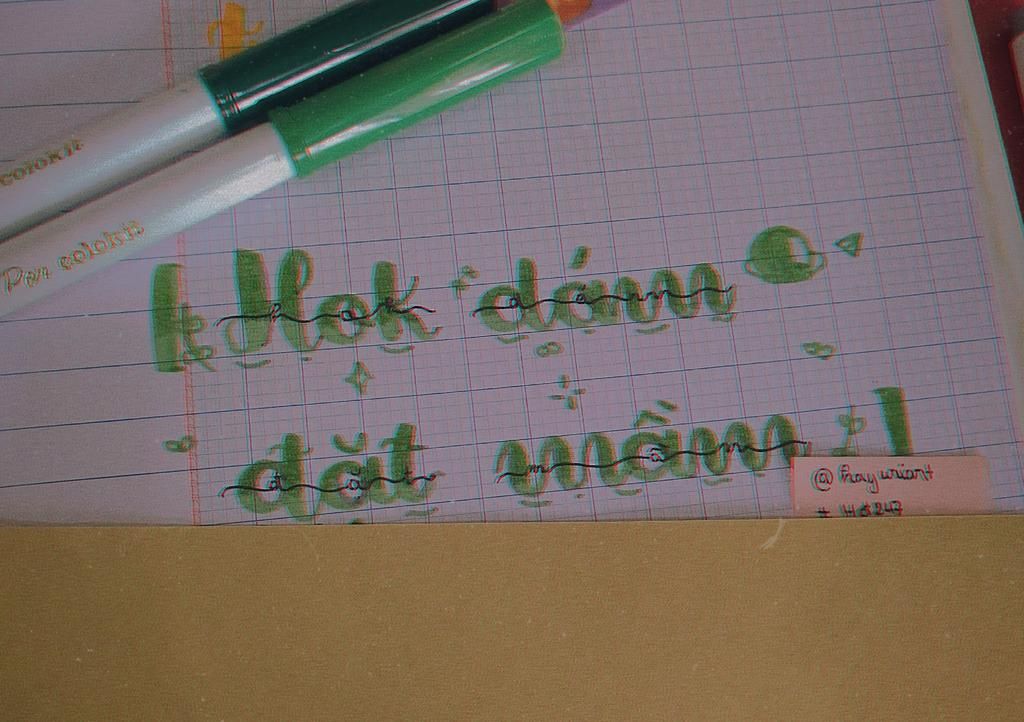 colokit
Pen colokit
Hok dám
đặt mầm
@hayuriart
# H$247